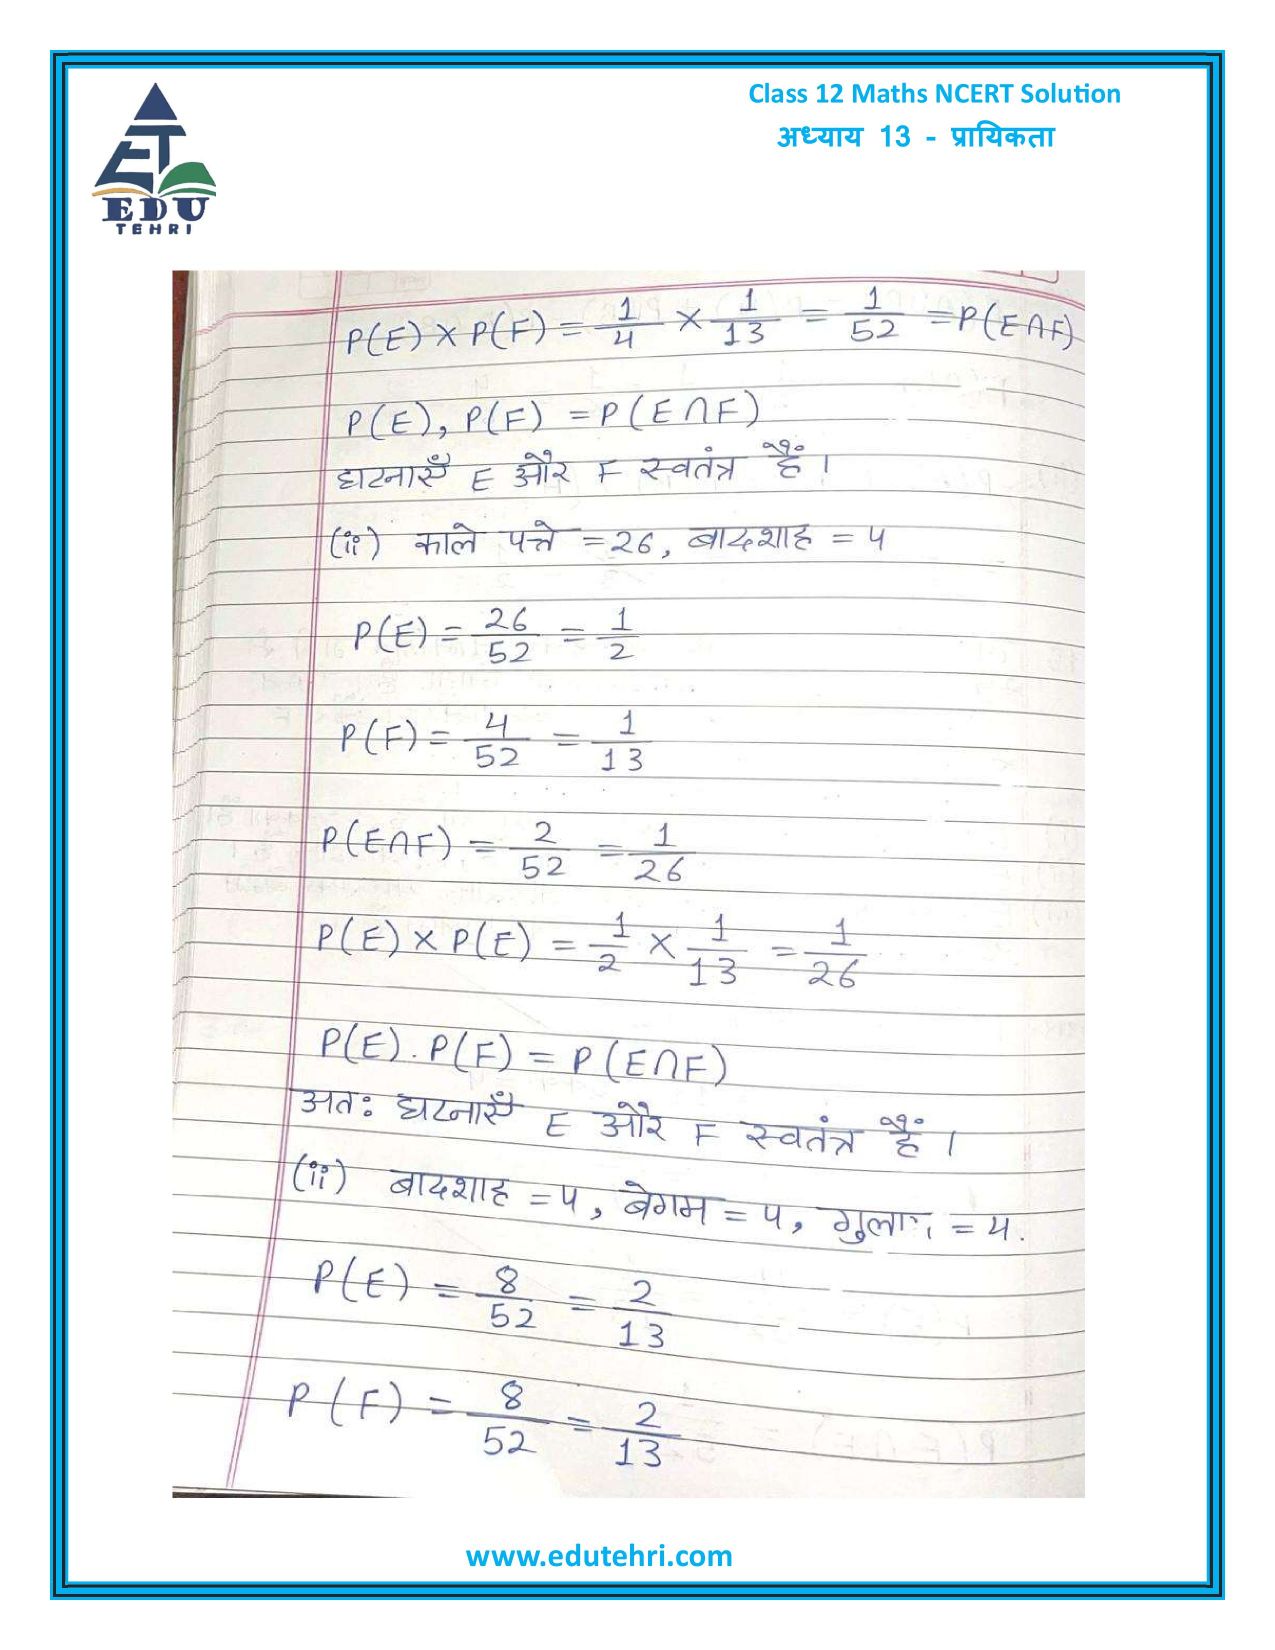 Class 12 Maths NCERT Solution
अध्याय 13 - प्रायिकता
EDU
TEHRI
P(E) × P(F) = 1/4 × 1/13 = 1/52 = P(E∩F)
P(E), P(F) = P(E∩F)
घटनाएँ E और F स्वतंत्र हैं।
(ii) काले पत्ते = 26, बादशाह = 4
P(E) = 26/52 = 1/2
P(F) = 4/52 = 1/13
P(E∩F) = 2/52 = 1/26
P(E) × P(E) = 1/2 × 1/13 = 1/26
P(E) . P(F) = P(E∩F)
अतः घटनाएँ E और F स्वतंत्र हैं।
(ii) बादशाह = 4, बेगम = 4, = 4.
P(E) = 8/52 = 2/13
P(F) = 8/52 = 2/13
www.edutehri.com